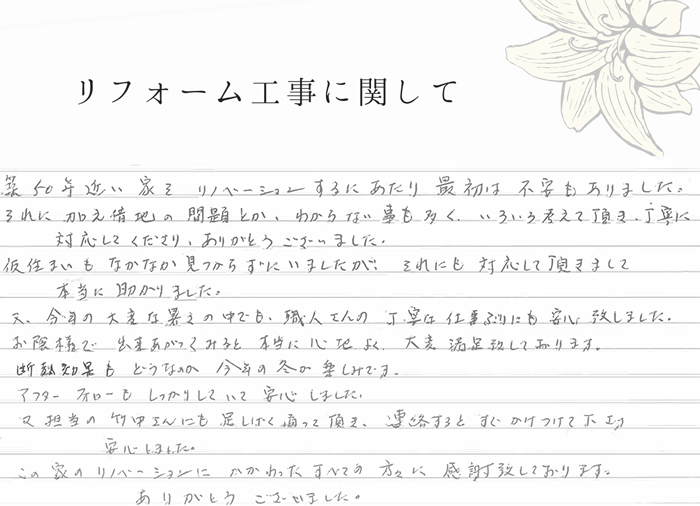 リフォーム工事に関して
築50年近い家をリノベーションするにあたり最初は不安もありました。
それに加え借地の問題とか、わからない事も多く、いろいろ考えて頂き、丁寧に
対応してくださり、ありがとうございました。
仮住まいもなかなか見つからずにいましたが、それにも対応して頂きまして
本当に助かりました。
又、今年の大変な暑さの中でも、職人さんの丁寧な仕事ぶりにも安心致しました。
お陰様で出来あがってみると本当に心地よく、大変満足致しております。
断熱効果もどうなのか今年の冬が楽しみです。
アフターフォローもしっかりしていて安心しました。
又担当の竹中さんにも足しげく通って頂き、連絡するとすぐかけつけて下さり
安心しました。
この家のリノベーションにかかわったすべての方々に感謝致しております。
ありがとうございました。